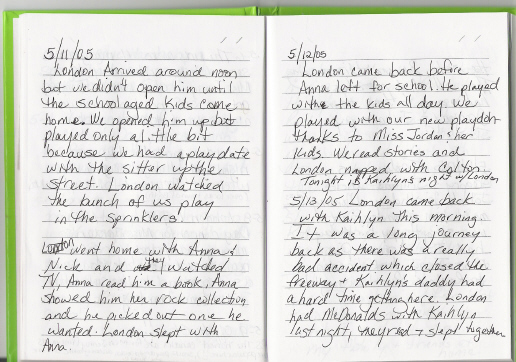 5/11/05
London Arrived around noon
but we didn't open him until
the school aged kids came
home. We opened him up but
played only a little bit
because we had a playdate
with the sitter up the
street. London watched
the bunch of us play
in the sprinklers.
London went home with Anna &
Nick and they watched
TV, Anna read him a book, Anna
showed him her rock collection
and he picked out one he
wanted. London slept with
Anna.
5/12/05
London came back before
Anna left for school. He played
with the kids all day. We
played with our new playdoh
thanks to Miss Jordan & her
kids. We read stories and
London napped with Colton.
Tonight is Kaihlyn's night w/ London
5/13/05 London came back
with Kaihlyn this morning.
It was a long journey
back as there was a really
bad accident which closed the
freeway & Kaihlyn's daddy had
a hard time getting here. London
had McDonalds with Kaihlyn
last night, they read & slept together.